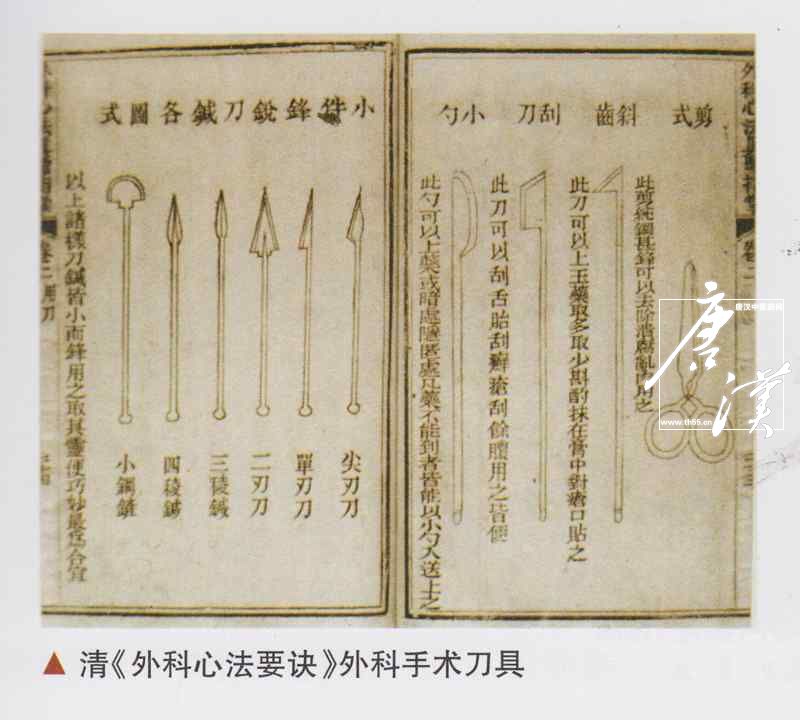 剪式
此剪純鋼甚鋒可以去除潰腐亂肉用之
斜齒
此刀可以上玉藥取多取少斟酌抹在膏中對瘡口貼之
刮刀
此刀可以刮舌胎刮癬瘡刮餘贅用之皆便
小勺
此勺可以上藥或暗處隱匿處凡藥不能到者皆能以小勺入送上之
小件鋒銳刀鍼各圖式
尖刃刀
單刃刀
二刃刀
三稜鍼
四稜鍼
小鐲鎈
以上諸樣刀鍼皆小而鋒用之取其靈便巧妙最為合宜
卷二
用刀
唐汉中医药网
唐漢
www.th55.cn
▲ 清《外科心法要诀》外科手术刀具